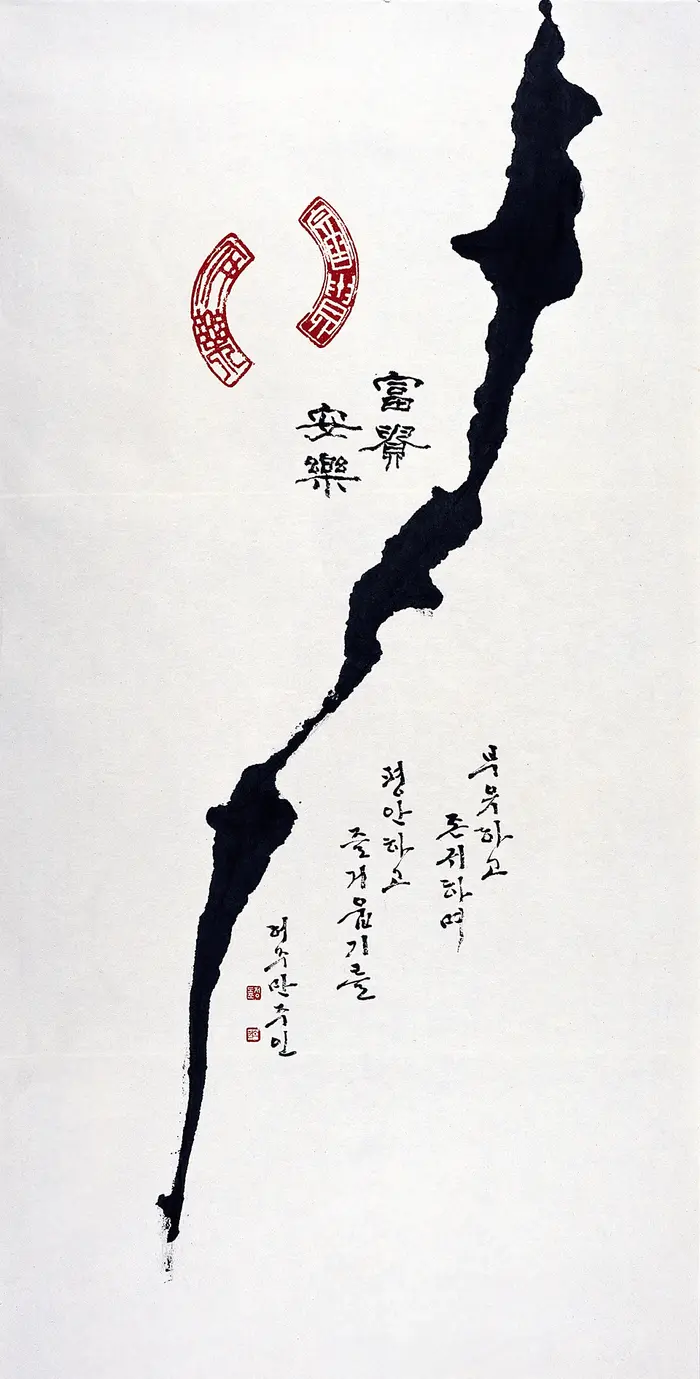 富貴
安樂
富貴
安樂
부유하고
존귀하며
평안하고
즐거웁기를
허수만주인